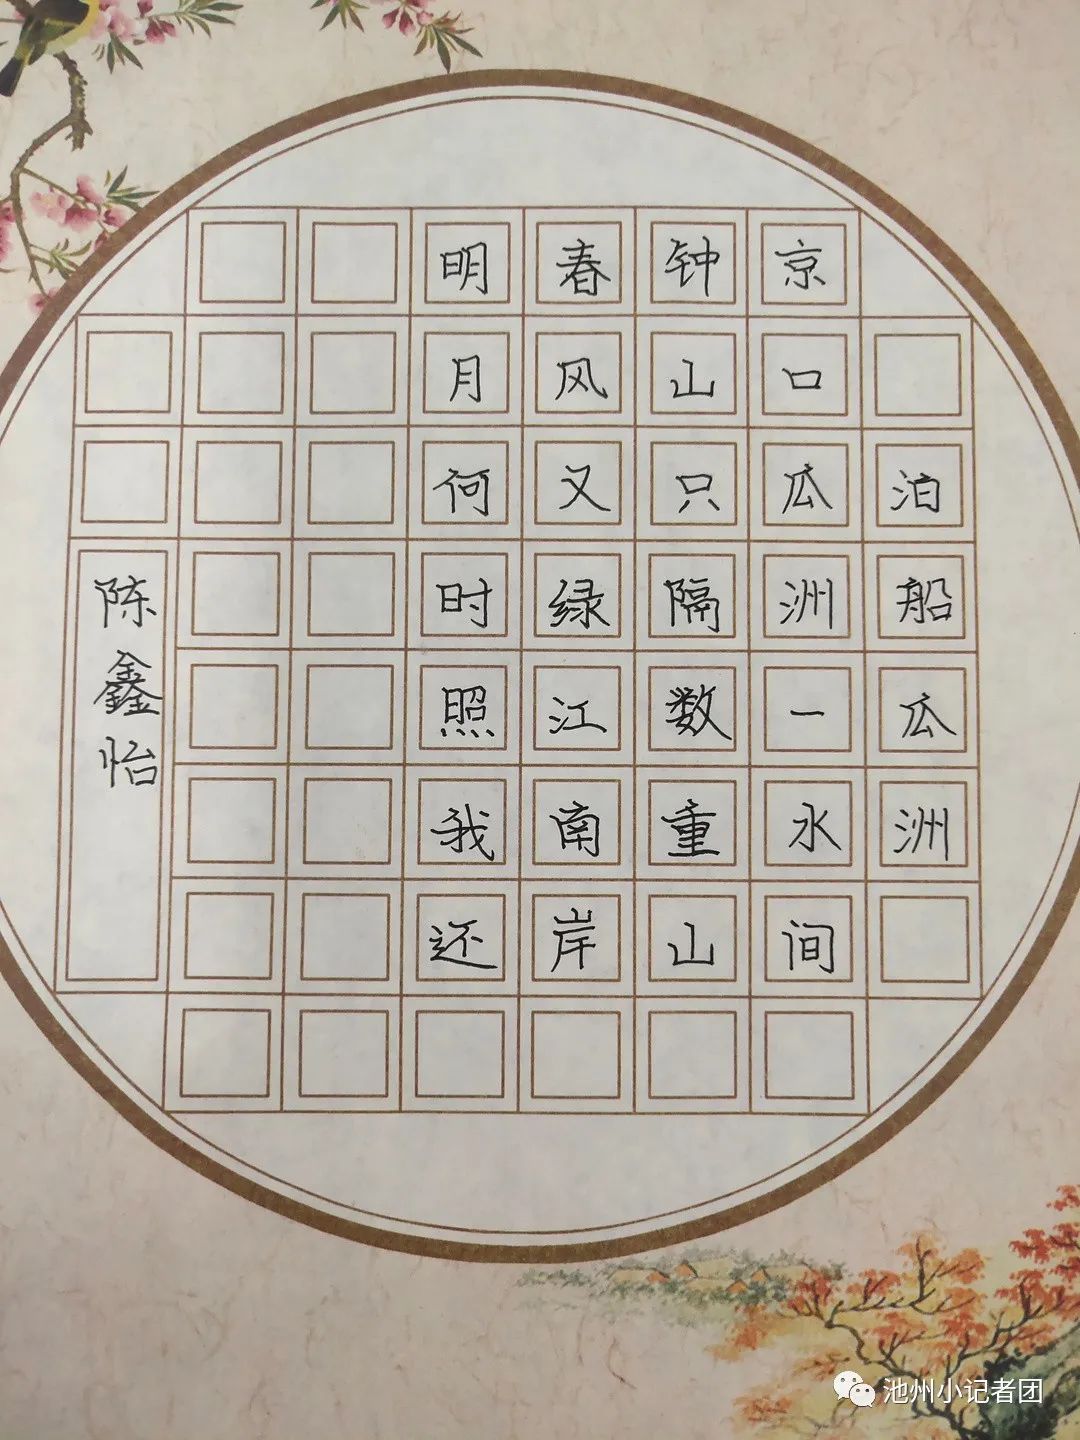 泊船瓜洲
京口瓜洲一水间
钟山只隔数重山
春风又绿江南岸
明月何时照我还
陈鑫怡
池州小记者团